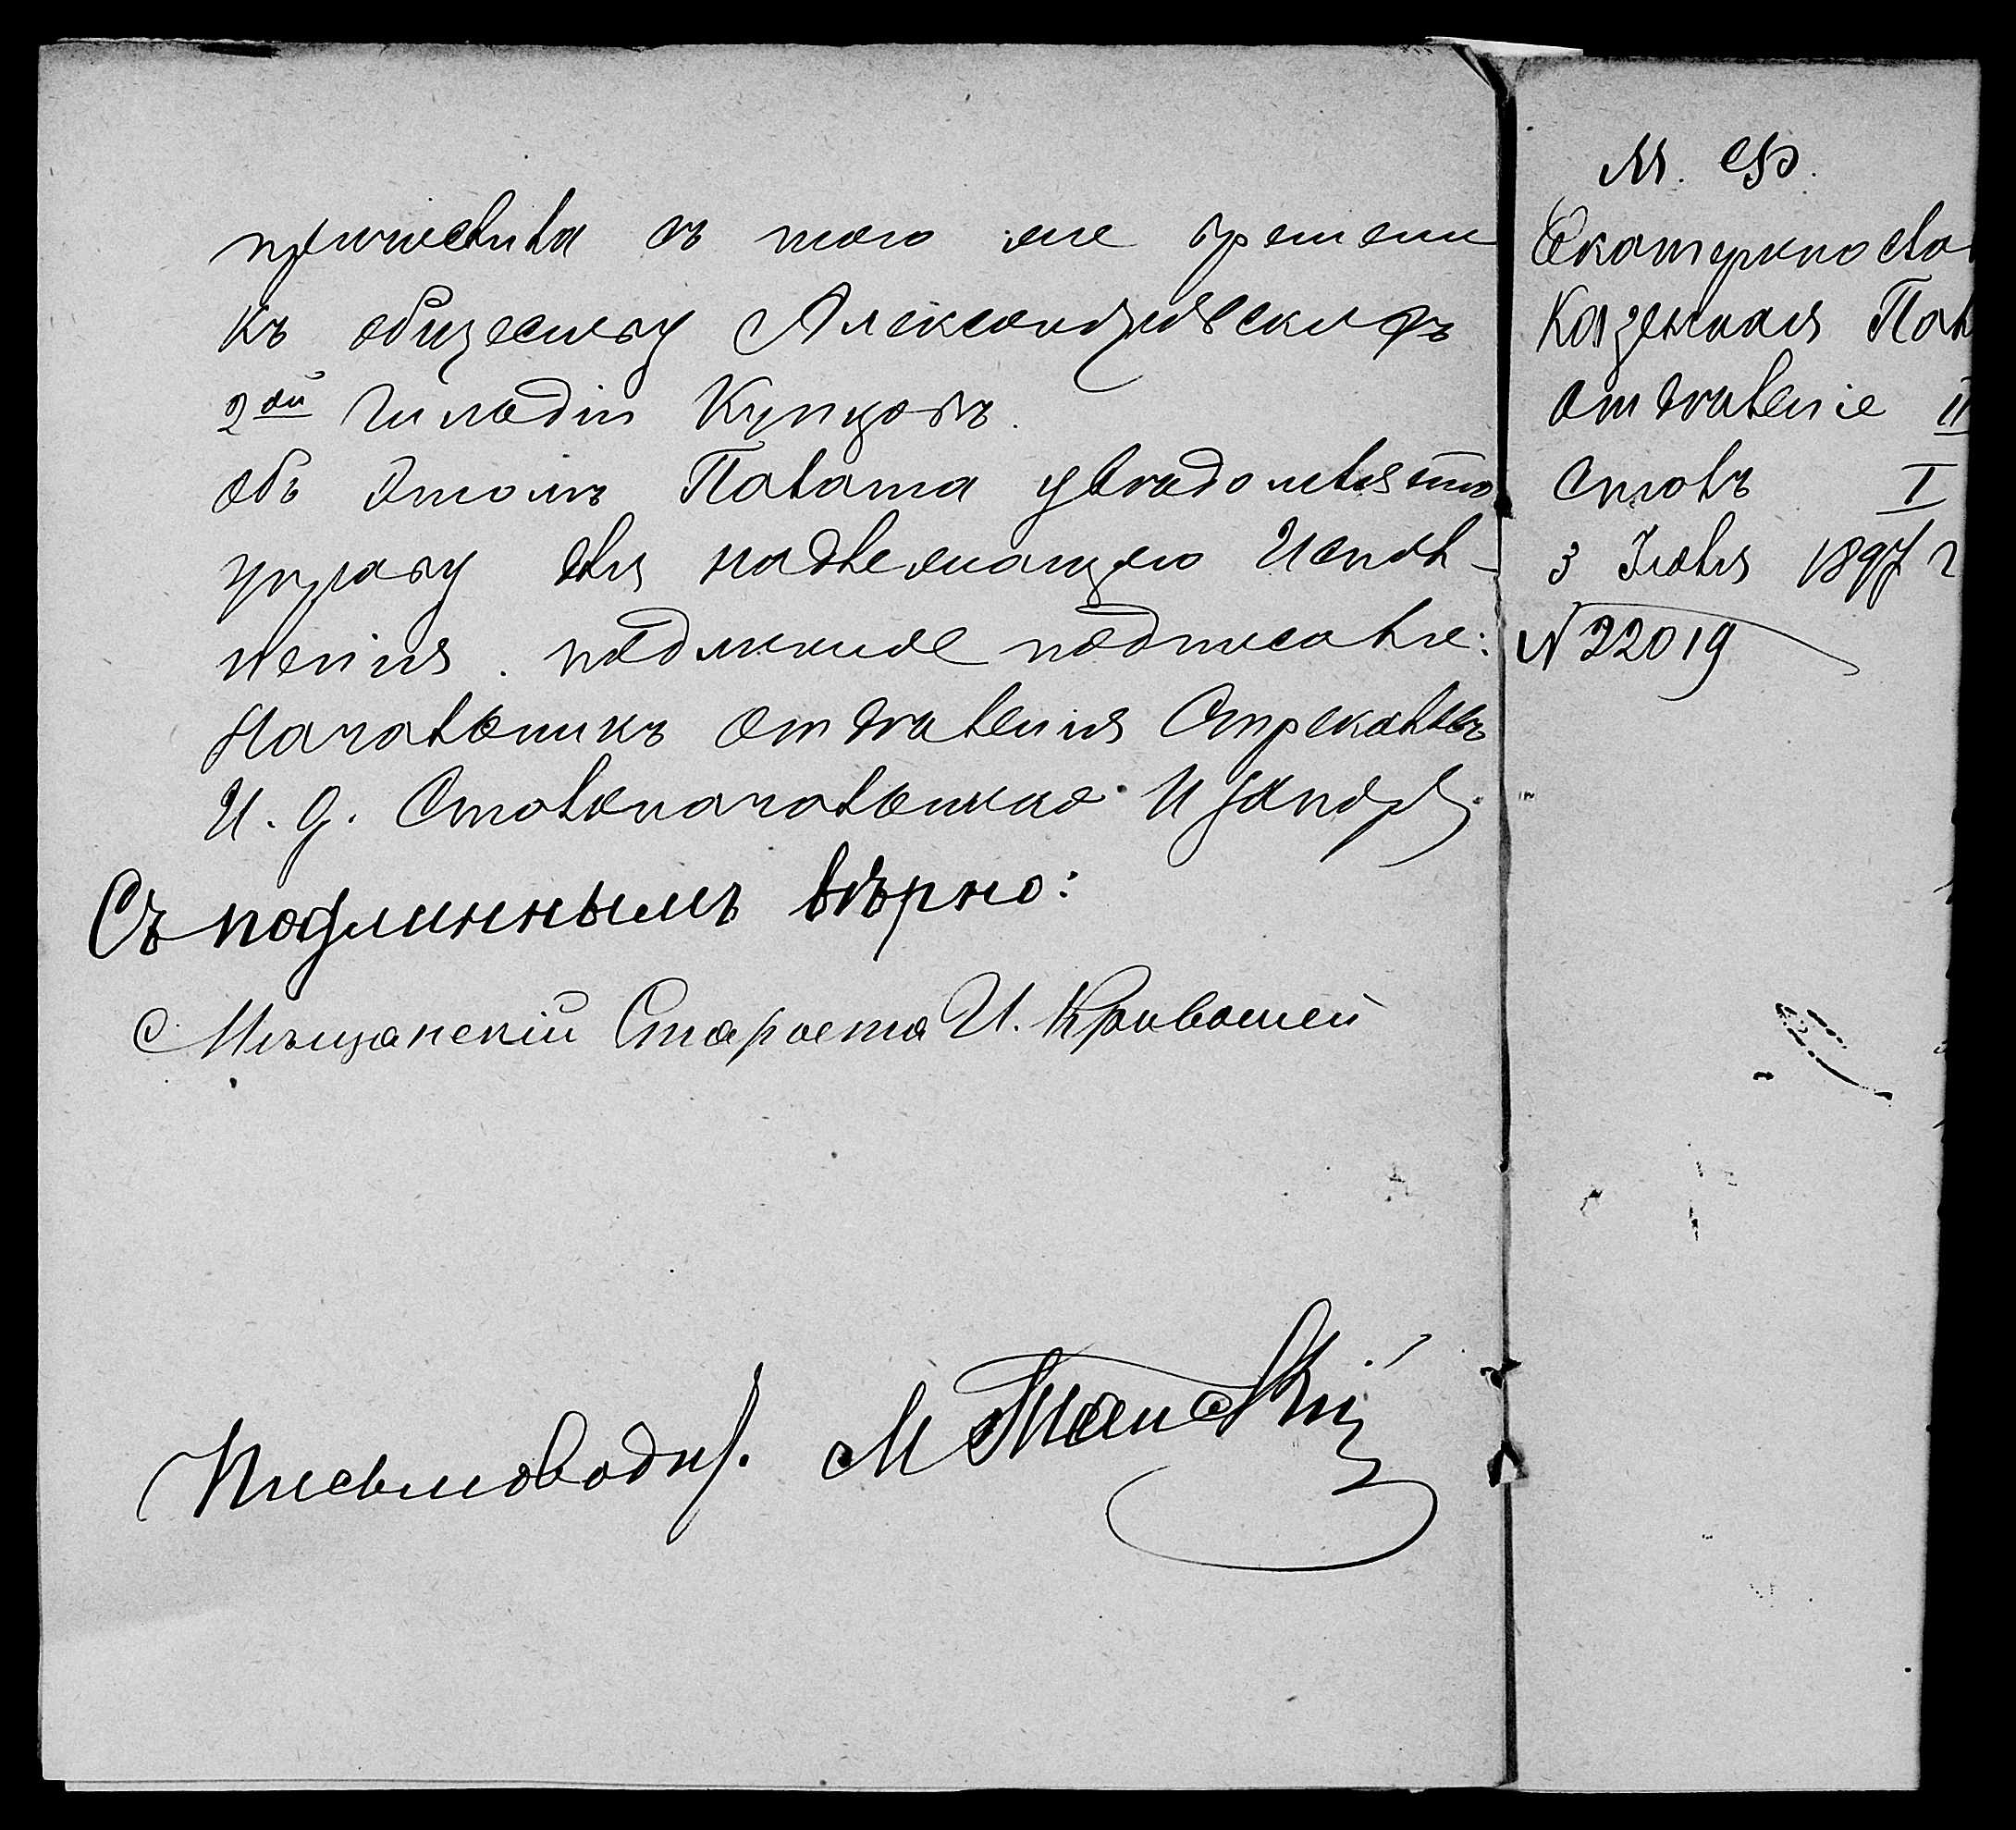 причислила съ того же времени
къ обществу Александровскихъ
2ой гильдіи Купцовъ.
Объ этомъ Палата увѣдомляетъ
управу для надлежащаго Испол-
ненія. подлинное подписали:
Начальникъ отдѣленія Стрекаловъ
И. д. Столоначальника
Съ подлиннымъ вѣрно:
Мѣщанскій Староста И. Кривошей
Письмоводит. М
М. Ф.
Екатериносла
Казенная Пал
отдѣленіе II
Столъ I
3 Іюля 1897 г
N 22019